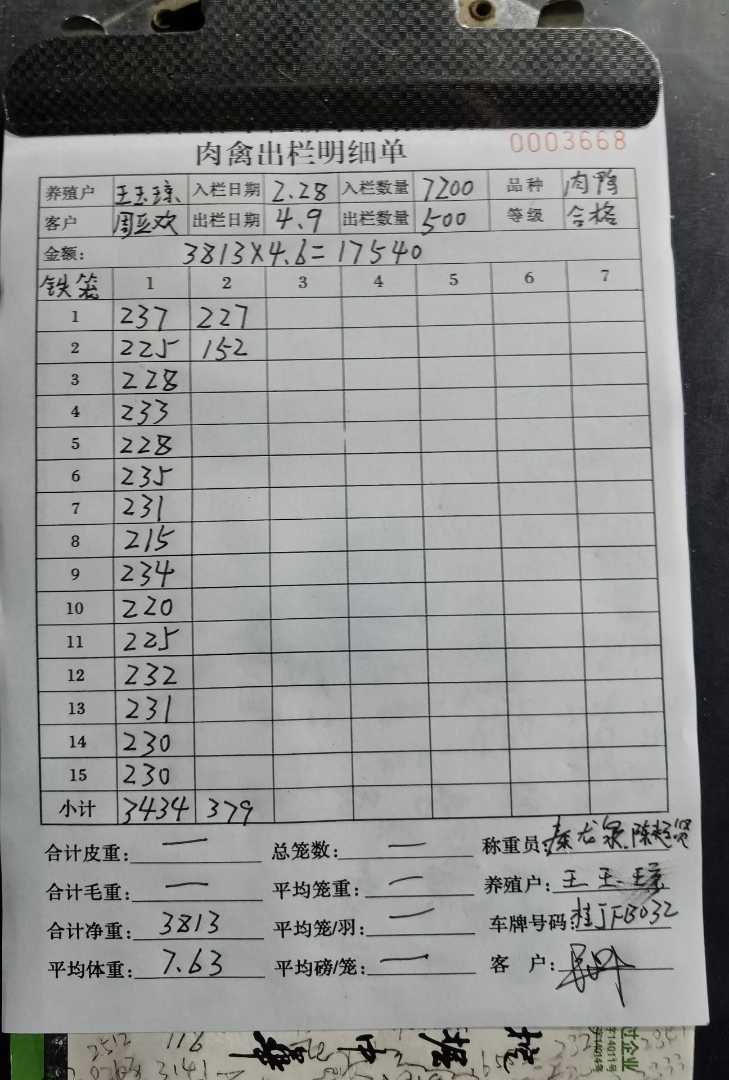 0003668
肉禽出栏明细单
养殖户 王玉琼 入栏日期 2.28 入栏数量 7200 品种 肉鸭
客户 周亚欢 出栏日期 4.9 出栏数量 500 等级 合格
金额: 3813X4.6=17540
铁笼 1 2 3 4 5 6 7
1 237 227
2 225 152
3 228
4 233
5 228
6 235
7 231
8 215
9 234
10 220
11 225
12 232
13 231
14 230
15 230
小计 3434 379
合计皮重: — 总笼数: — 称重员: 秦龙泉.陈
合计毛重: — 平均笼重: — 养殖户: 王玉琼
合计净重: 3813 平均笼/羽: — 车牌号码: 桂JFB032
平均体重: 7.63 平均磅/笼: — 客 户:
2512 116
3141